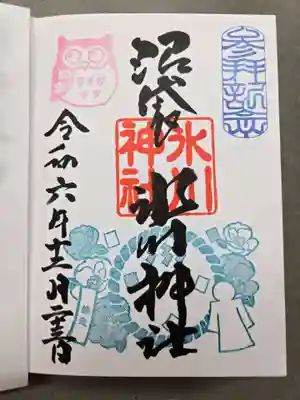 参拝記念
沼袋氷川神社
氷川
神社
令和六年十二月